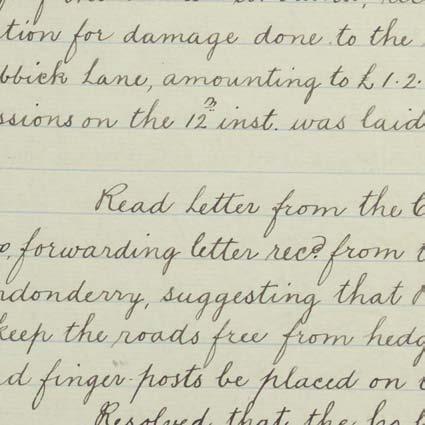 tion for damage done to the
bbick Lane, amounting to £1.2.
ssions on the 12th inst. was laid
Read Letter from the C
forwarding letter recd. from t
ndonderry, suggesting that
keep the roads free from hedg
d finger-posts be placed on
Resolved that the